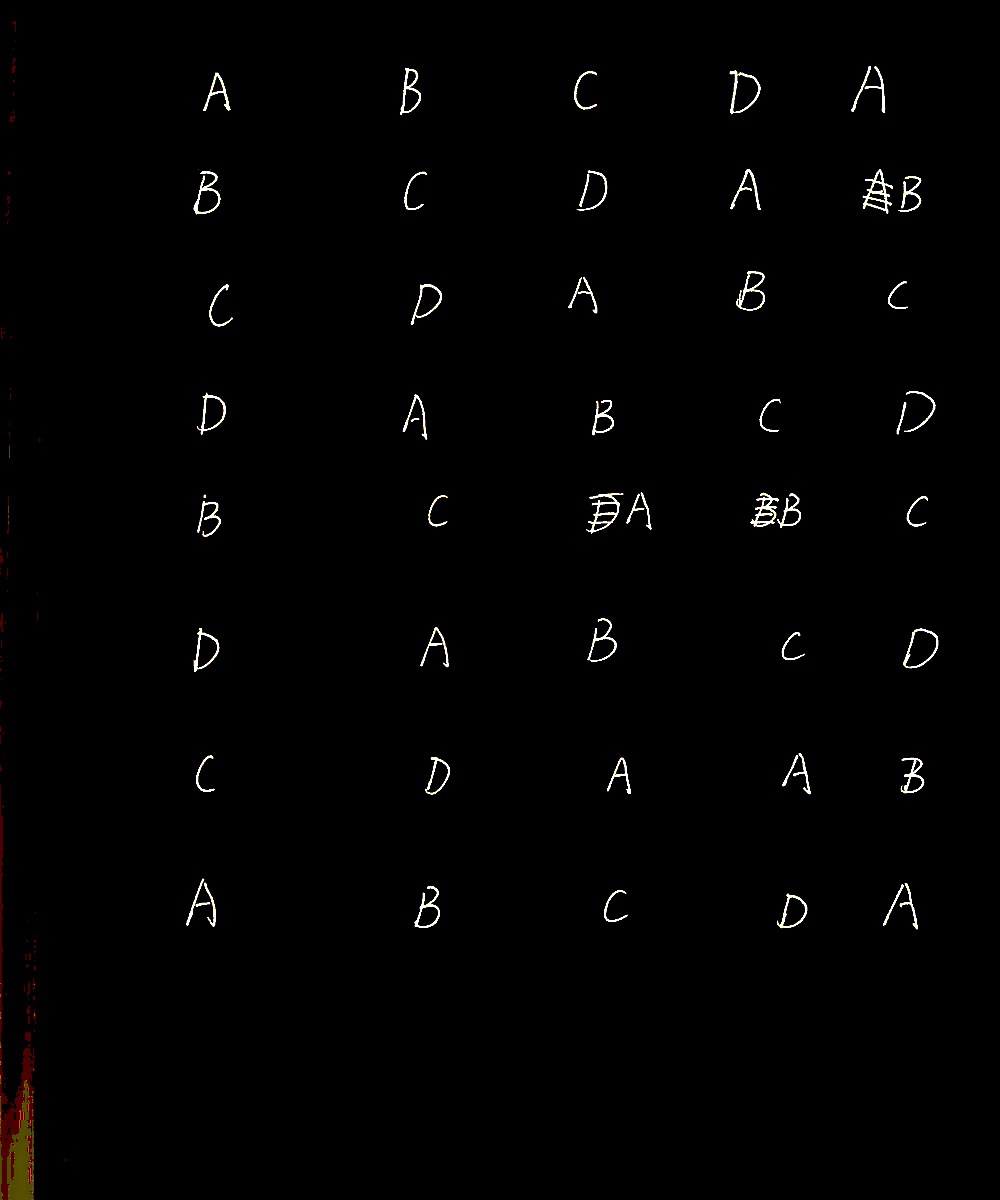 A B C D A
B C D A B
C D A B C
D A B C D
B C A B C
D A B C D
C D A A B
A B C D A